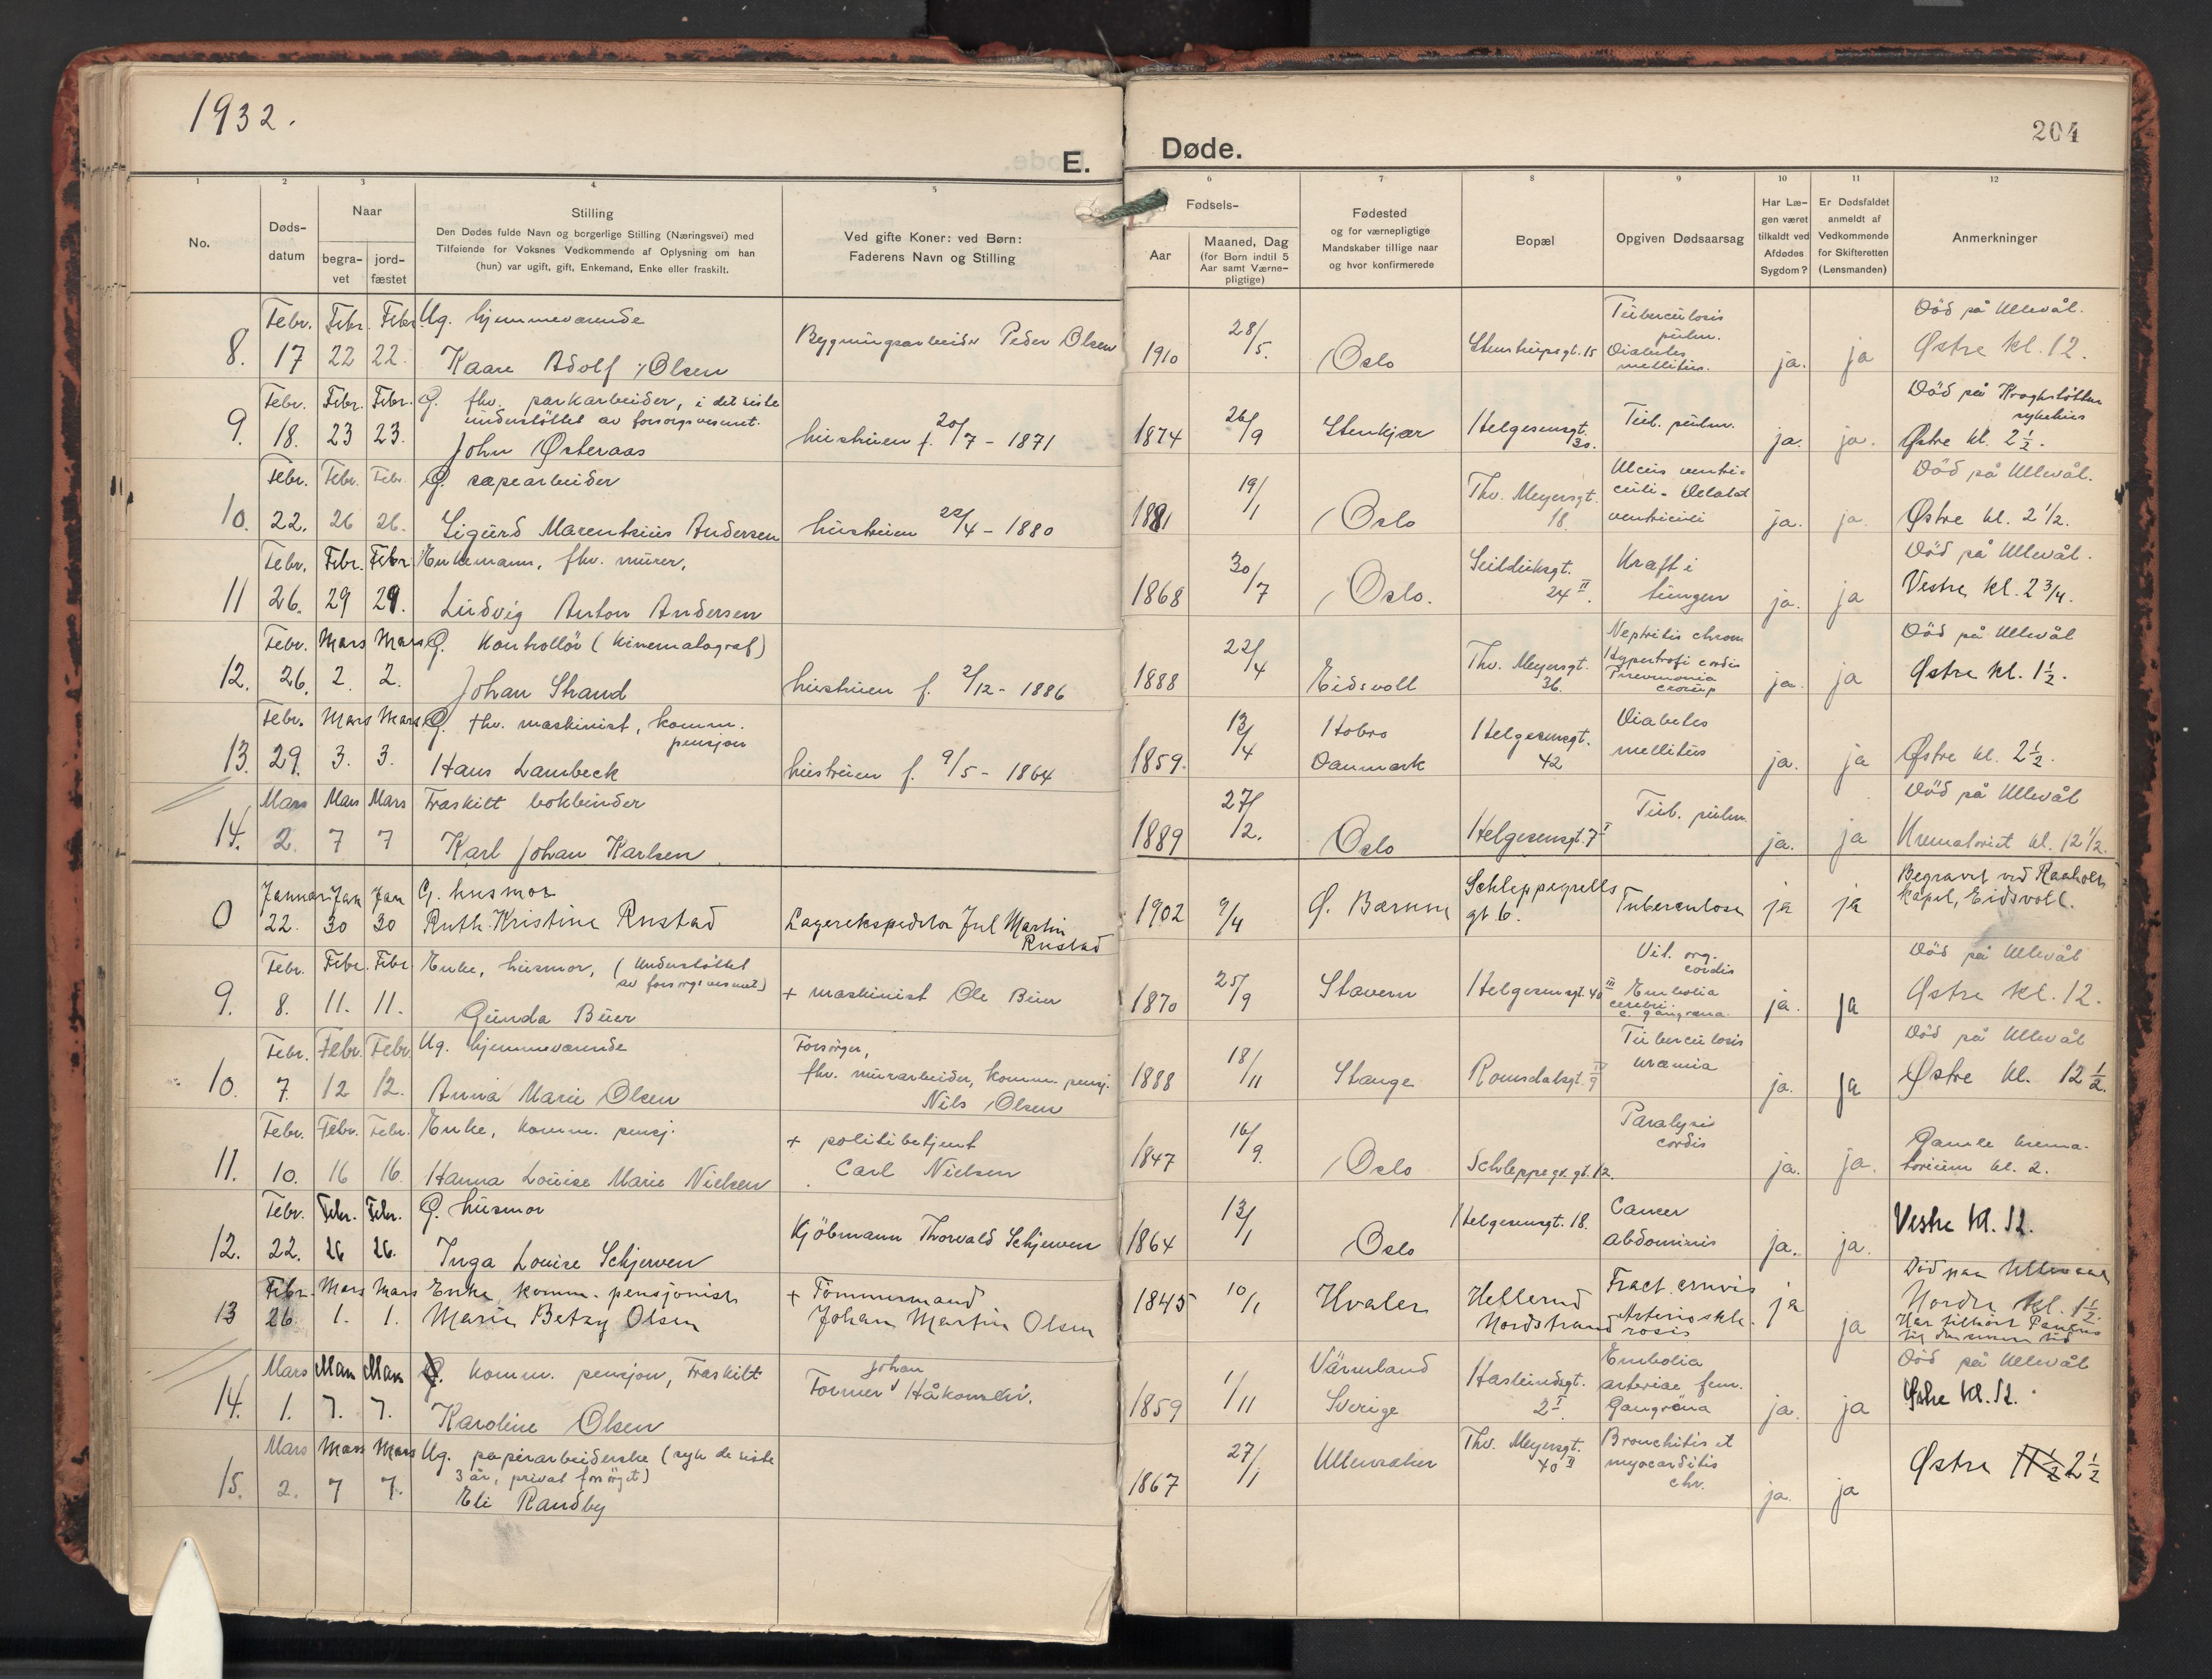 1932.
204
E. Døde.
1 2 3 4 5 6 7 8 9 10 11 12
No.
Døds-
datum
Naar
begra-
vet
jord-
fæstet
Stilling
Den Dødes fulde Navn og borgerlige Stilling (Næringsvei) med
Tilføiende for Voksnes Vedkommende af Oplysning om han
(hun) var ugift, gift, Enkemand, Enke eller fraskilt.
Ved gifte Koner: ved Børn:
Faderens Navn og Stilling
Fødsels-
Aar
Maaned, Dag
(for Børn indtil 5
Aar samt Værne-
pligtige)
Fødested
og for værnepligtige
Mandskaber tillige naar
og hvor konfirmerede
Bopæl
Opgiven Dødsaarsag
Har Læ-
gen været
tilkaldt ved
Afdødes
Sygdom?
Er Dødsfaldet
anmeldt af
Vedkommende
for Skifteretten
(Lensmanden)
Anmerkninger
8. Febr. 17 Febr. 22 Febr. 22. Ug. hjemmeværende
Kaare Adolf Olsen
Bygningsarbeider Peder Olsen
1910 28/5. Oslo Stenstrupsgt. 15
Tuberculosis pulm.
Diabetes mellitus.
ja. ja
Död på Ullevål.
Østre kl. 12.
9. Febr. 18. Febr. 23 Febr. 23. G. fhv. parkarbeider, i det siste
understöttet av forsorgsvesenet.
John Østeraas
hustruen f. 20/7 - 1871
1874 26/9 Stenkjær Helgesensgt. 30.
Tub. pulm.
ja. ja.
Död på Kroghstöttens
sykehus
Østre kl. 2 1/2.
10. Febr. 22. Febr. 26 Febr. 26. G. sæpearbeider
Sigurd Marentsius Andersen
hustruen 22/4 - 1880
1881 19/1 Oslo Thv. Meyersgt. 18.
Ulcus ventri-
culi - Dilatat
ventriculi
ja. ja.
Död på Ullevål.
Østre kl. 2 1/2.
11 Febr. 26. Febr. 29 Febr. 29. Enkemann, fhv. murer,
Ludvig Anton Andersen
1868 30/7 Oslo. Seilduksgt. 24 II.
Kræft i
lungen
ja. ja
Död på Ullevål.
Vestre kl. 2 3/4.
12. Febr. 26. Mars 2. Mars 2. G. Kontrollör (Kinematograf)
Johan Strand
hustruen f. 2/12 - 1886
1888 22/4 Eidsvoll Thv. Meyersgt. 36.
Nephritis chron
Hypertrofi cordis
Pneumonia
croup
ja. ja
Död på Ullevål
Østre kl. 1 1/2.
13. Febr. 29. Mars 3. Mars 3. G. fhv. maskinist, komm.
pensjon
Hans Lambeck
hustruen f. 9/5 - 1864
1859. 13/4 Hobro
Danmark
Helgesensgt. 42
Diabetes
mellitus
ja. ja
Østre kl. 2 1/2.
14. Mars 2. Mars 7 Mars 7 Fraskilt bokbinder
Karl Johan Karlsen.
1889 27/12. Oslo Helgesensgt. 7 I
Tub. pulm.
ja. ja
Död på Ullevål
Krematoriet kl. 12 1/2.
0 Januar 22. Jan 30 Jan 30 G. husmor
Ruth Kristine Rustad
Lagerekspeditör Jul Martin
Rustad
1902 9/4 Ø. Bærum Schleppegrells
gt 6.
Tuberculose
ja ja
Begravet ved Raaholt
kapel, Eidsvoll.
9. Febr. 8. Febr. 11. Febr. 11. Enke, husmor, (Understöttet
av forsorgsvesenet)
Gunda Buer
+ maskinist Ole Buer
1870 25/9 Stavern Helgesensgt. 40 III
Vit. org.
cordis
Embolia
cerebri.
c. gangræna.
ja. ja
Död på Ullevål
Østre kl. 12.
10. Febr. 7. Febr. 12 Febr. 12. Ug. hjemmeværende
Anna Marie Olsen
Forsörger,
fhv. murarbeider, komm. pensj.
Nils Olsen
1888 18/11 Stange Romsdalsgt. 9 IV
Tuberculosis
uræmia
ja. ja
Död på Ullevål
Østre kl. 12 1/2.
11. Febr. 10. Febr. 16 Febr. 16. Enke, komm. pensj.
Hanna Louise Marie Nielsen
+ politibetjent
Carl Nielsen
1847 16/9. Oslo Schleppegr. gt. 12.
Paralysis
cordis
ja. ja.
Gamle krema-
torium kl. 2.
12. Febr. 22. Febr. 26 Febr. 26. G. husmor
Inga Louise Schjerven
Kjöbmann Thorvald Schjerven
1864 13/1 Oslo Helgesensgt. 18.
Cancer
abdominis
ja. ja.
Vestre kl. 12.
13 Febr. 26. Mars 1. Mars 1. Enke, komm. pensjonist
Marie Betzy Olsen
+ Tömmermand
Johan Martin Olsen
1845 10/1 Hvaler Hellerud
Nordstrand
Fract. cruris
Arterioskle-
rosis
ja ja
Död paa Ullevaal
Nordre kl. 1 1/2.
Har tilhört Paulus
14. Mars 1. Mars 7. Mars 7. G. komm. pensjon, Fraskilt
Karoline Olsen
Johan
Former Håkonsen.
1859 1/11 Värmland
Sverige
Haslundsgt.
2 I.
Embolia
arteriae fem.
Gangräna
ja. ja
Död på Ullevål
Østre kl. 12.
15. Mars 2. Mars 7 Mars 7. Ug. papirarbeiderske (syk de siste
3 år, privat forsörget)
Eli Randby
1867 27/1 Ullensaker Thv. Meyersgt.
40 II
Bronchitis et
myocarditis
chr.
ja. ja
Østre 11 1/2 2 1/2